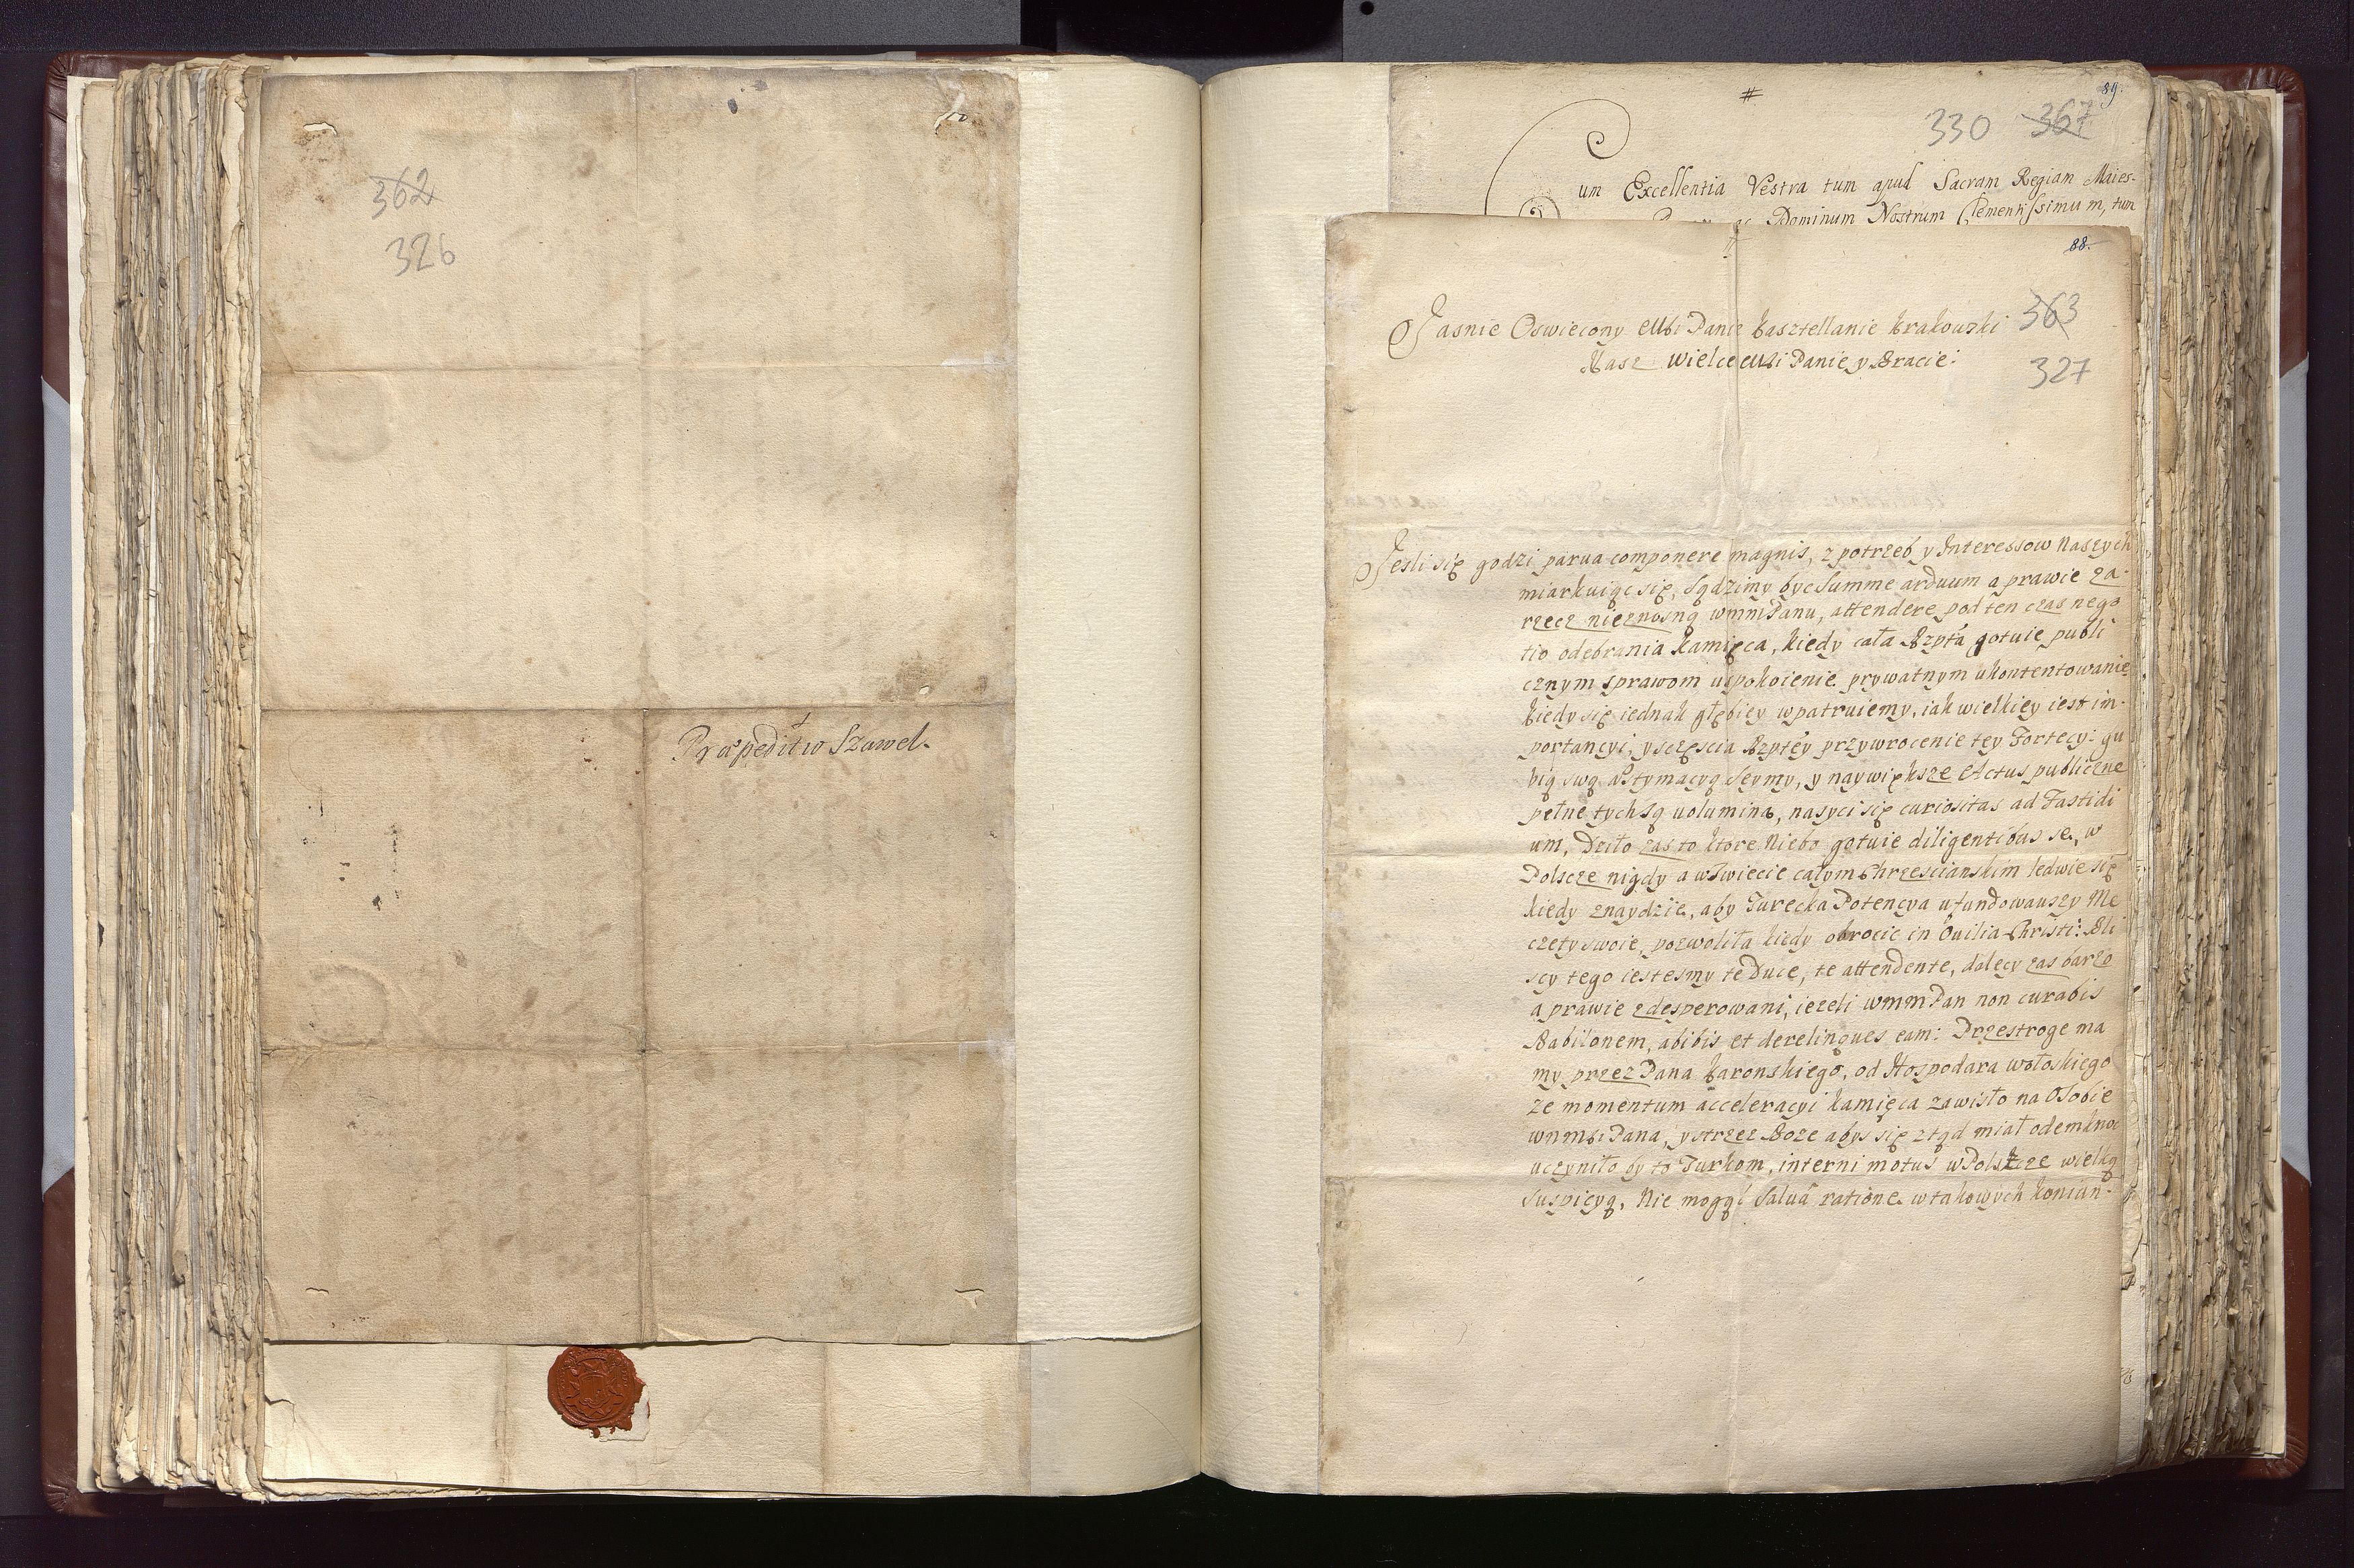 362
326
Præpedit w Szawel.
#
89.
330 367
um Excellentia Vestra tum apud Sacram Regiam Maies-
ac Dominum Nostrum Clementissimum, tum
88.
363
Jasnie Oswiecony Mśi Panie Kasztellanie Krakowski
Nasz wielce Mśi Panie y Bracie:
327
Jesli się godzi parua componere magnis, z potrzeb y Interessow Naszych
miarkuiąc się, Sądzimy byc Summe arduum a prawie za
rzecz nieznosną wmmPanu, attendere pod ten czas nego
tio odebrania Kamięca, kiedy cała Rzpta gotuie publi
cznym sprawom uspokoienie prywatnym ukontentowanie
kiedy się iednak głębiey wpatruiemy, iak wielkiey iest im-
portancyi, y sczęscia Rzptey przywrocenie tey Fortecy: gu
bią swą æstymacyą Seymy, y naywiększe Actus publiczne
pełne tych są uolumina, nasyci się curiositas ad Fastidi
um, Dziło zas to ktore Niebo gotuie diligentibus se, w
Polscze nigdy a w swiecie całym Chrzescianskim ledwie się
kiedy znaydzie, aby Turecka Potencya ufundowauszy Me
czety swoie, pozwoliła kiedy obrocic in Ouilia Christi: Bli
scy tego iestesmy te Duce, te attendente, dalecy zas barzo
a prawie zdesperowani, iezeli wmmPan non curabis
Babilonem, abibis et derelinques eam: Przestroge ma
my przez Pana Karonskiego, od Hospodara wołoskiego
ze momentum acceleracyi Kamięca zawisło na Osobie
wmmśi Pana, y strzez Boze abys się ztąd miał odemknoc
uczyniło by to Turkom, interni motus w Polszcze wielką
suspicyą, Nie mogąc Saluâ ratione w takowych koniun-